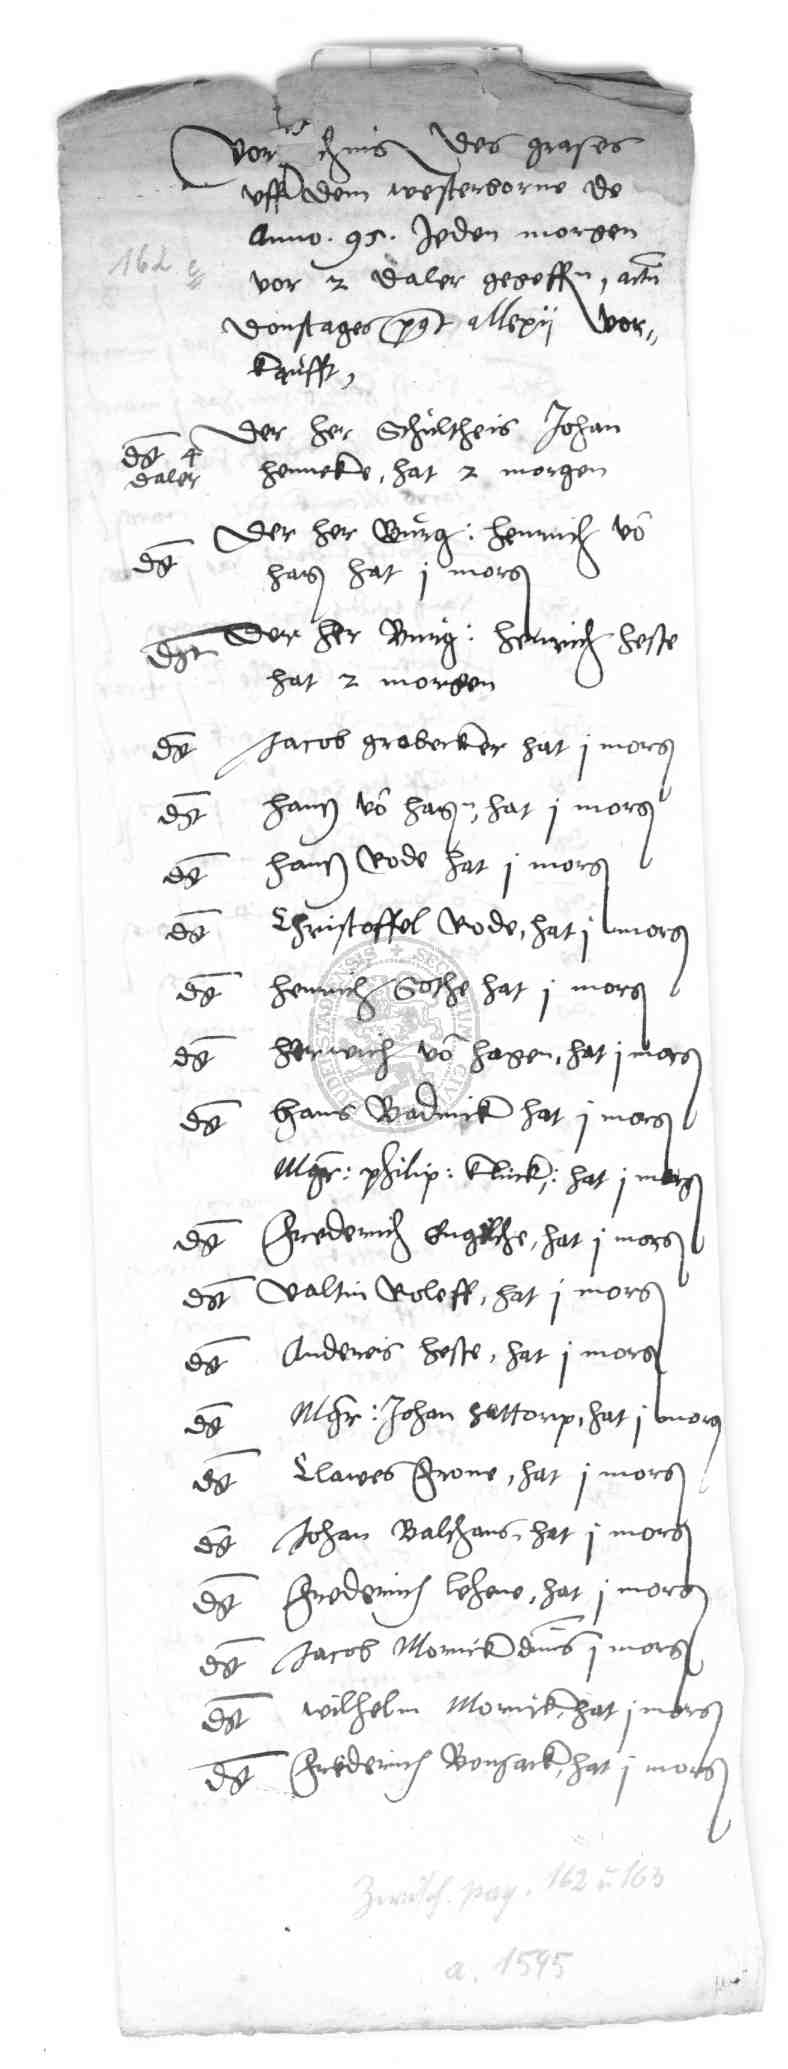 des grases
uff dem westerborne de
Anno . 95 . Jeden morgen
162 c
vor 2 daler gegeffn, actu
donstages post allexii vor„
kaufft,
Der her Schultheis Johan
dt 4 daler henneke, hat 2 morgen
Der her Burg: henrich vo
dt hagen hat j morg
dt Der her Burg: henrich hesse
hat 2 morgen
dt Jacob grobecker hat j morg
dt hans vo hagen, hat j morg
dt hans Rode hat j morg
dt Christoffel Rode, hat j morg
dt henrich Gothe hat j morg
dt henrich vo hagen, hat j morg
dt Hans Badenick hat j morg
Mgr: philip: Klinck: hat j morg
dt Frederich Engelke, hat j morg
dt Valtin Roleff, hat j morg
dt Andereis hesse, hat j morg
dt Mgr: Johan Hattorp, hat j morg
dt Clawes Frone, hat j morg
dt Johan Balthaus, hat j morg
dt Frederich lehene, hat j morg
dt Jacob Mornick j morg
dt wilhelm Mornick, hat j morg
dt Frederich Bonsack, hat j morg
Zwisch. pag. 162 u 163
a. 1595